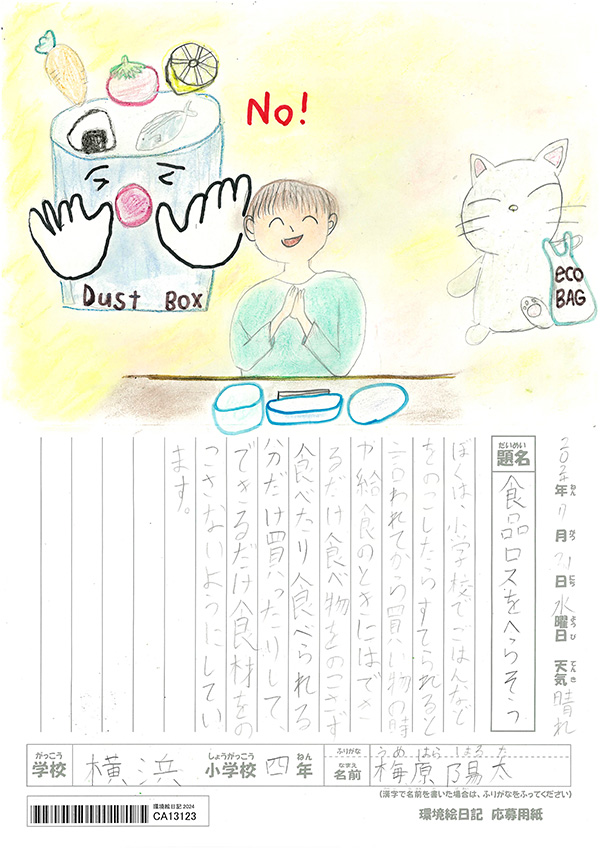 No!
Dust Box
eco
BAG
2024年7月31日水曜日 天気 晴れ
ねん がつ にち ようび てんき
だいめい
題名
食品ロスをへらそう
ぼくは、小学校でごはんなど
をのこしたらすてられると
言われてから買い物の時
や給食のときにはでき
るだけ食べ物をのこさず
食べたり食べられる
分だけ買ったりして、
できるだけ食材をの
こさないようにしてい
ます。
がっこう しょうがっこう ねん
学校 横浜 小学校 四年
ふりがな うめ はら しょう た
なまえ
名前 梅原陽太
(漢字で名前を書いた場合は、ふりがなをふってください)
環境絵日記 2024
CA13123
環境絵日記 応募用紙